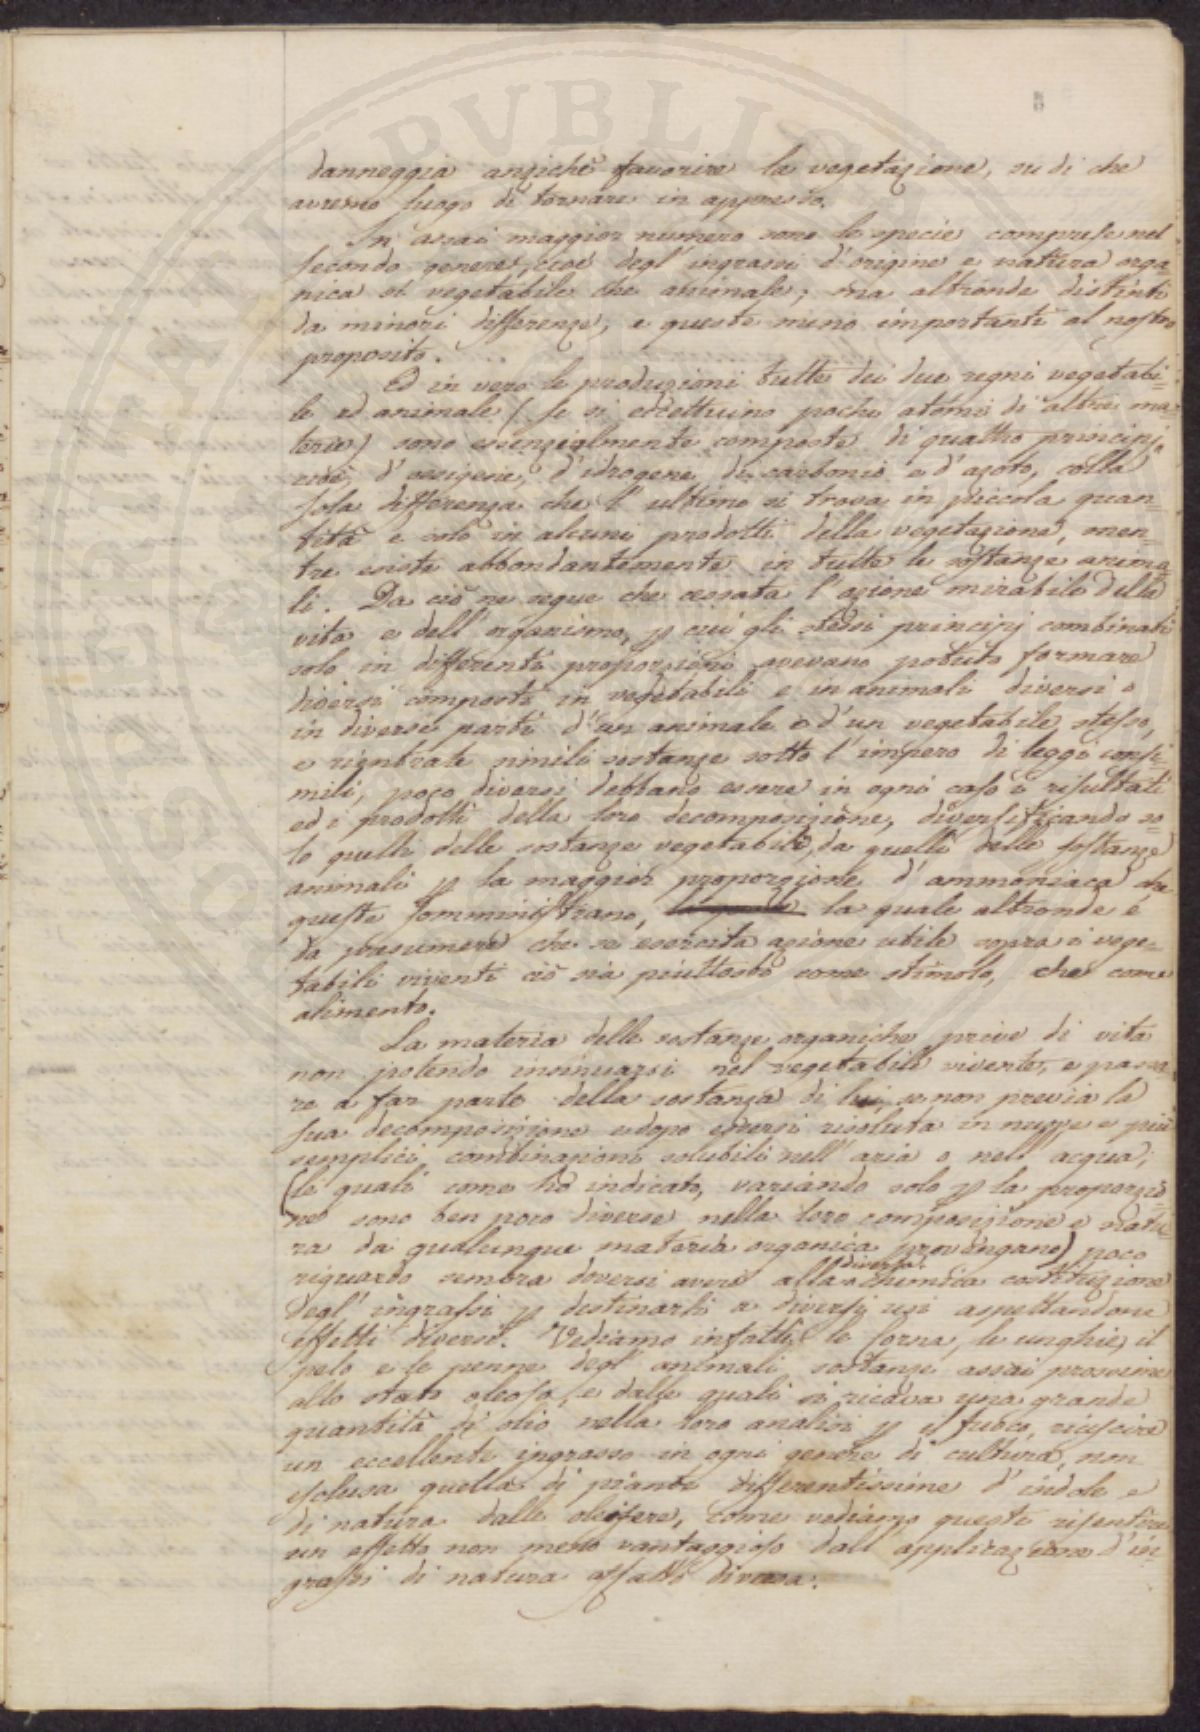 danneggia anzichè favorire la vegetazione, su di che
avremo luogo di tornare in appresso.
In assai maggior numero sono le specie comprese nel
secondo genere, cioè degl'ingrassi d'origine e natura orga=
nica sì vegetabile che animale; ma altronde distinti
da minori differenze, e queste meno importanti al nostro
proposito.
Ed in vero le produzioni tutte dei due regni vegetabi=
le ed animale (se si eccettuino pochi atomi di altre ma=
terie) sono essenzialmente composte di quattro principj,
cioè, d'ossigene, d'idrogene, di carbonio e d'azoto, colla
sola differenza che l'ultimo si trova in piccola quan=
tità e solo in alcuni prodotti della vegetazione, men=
tre esiste abbondantemente in tutte le sostanze anima=
li. Da ciò ne segue che cessata l'azione mirabile della
vita e dell'organismo, p cui gli stessi principj combinati
solo in differenti proporzioni avevano potuto formare
diversi composti in vegetabili e in animali diversi o
in diverse parti d'un animale o d'un vegetabile stesso,
e rientrate simili sostanze sotto l'impero di leggi consi=
mili, poco diversi debbano essere in ogni caso i risultati
ed i prodotti della loro decomposizione, diversificando so=
lo quelli delle sostanze vegetabili, da quelli delle sostanze
animali p la maggior proporzione d'ammoniaca che
queste somministrano, la quale altronde è
da presumere che se esercita azione utile sopra i vege=
tabili viventi ciò sia piuttosto come stimolo, che come
alimento.
La materia delle sostanze organiche prive di vita
non potendo insinuarsi nel vegetabile vivente, e passa
re a far parte della sostanza di lui, se non previa la
sua decomposizione e dopo essersi risoluta in nuove e più
semplici combinazioni solubili nell'aria o nell'acqua;
(le quali come ho indicato, variando solo p la proporzio=
ne sono ben poco diverse nella loro composizione e natu=
ra da qualunque materia organica provengano) poco
riguardo sembra doversi avere alla diversa chimica costituzione
degl'ingrassi p destinarli a diversi usi aspettandone
effetti diversi. Vediamo infatti le corna, le unghie, il
pelo e le penne degl'animali sostanze assai prossime
allo stato oleoso, e dalle quali si ricava una grande
quantità di olio nella loro analisi p il fuoco, riuscire
un eccellente ingrasso in ogni genere di cultura, non
esclusa quella di piante differentissime d'indole e
di natura dalle oleifere, come vediamo queste risentire
un effetto non meno vantaggioso dall'applicazione d'in=
grassi di natura affatto diversa.